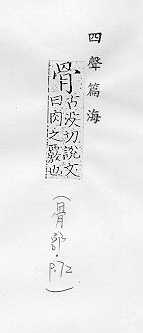 四聲篇海
骨古没切說文
曰肉之覈也
(骨部·p.72)